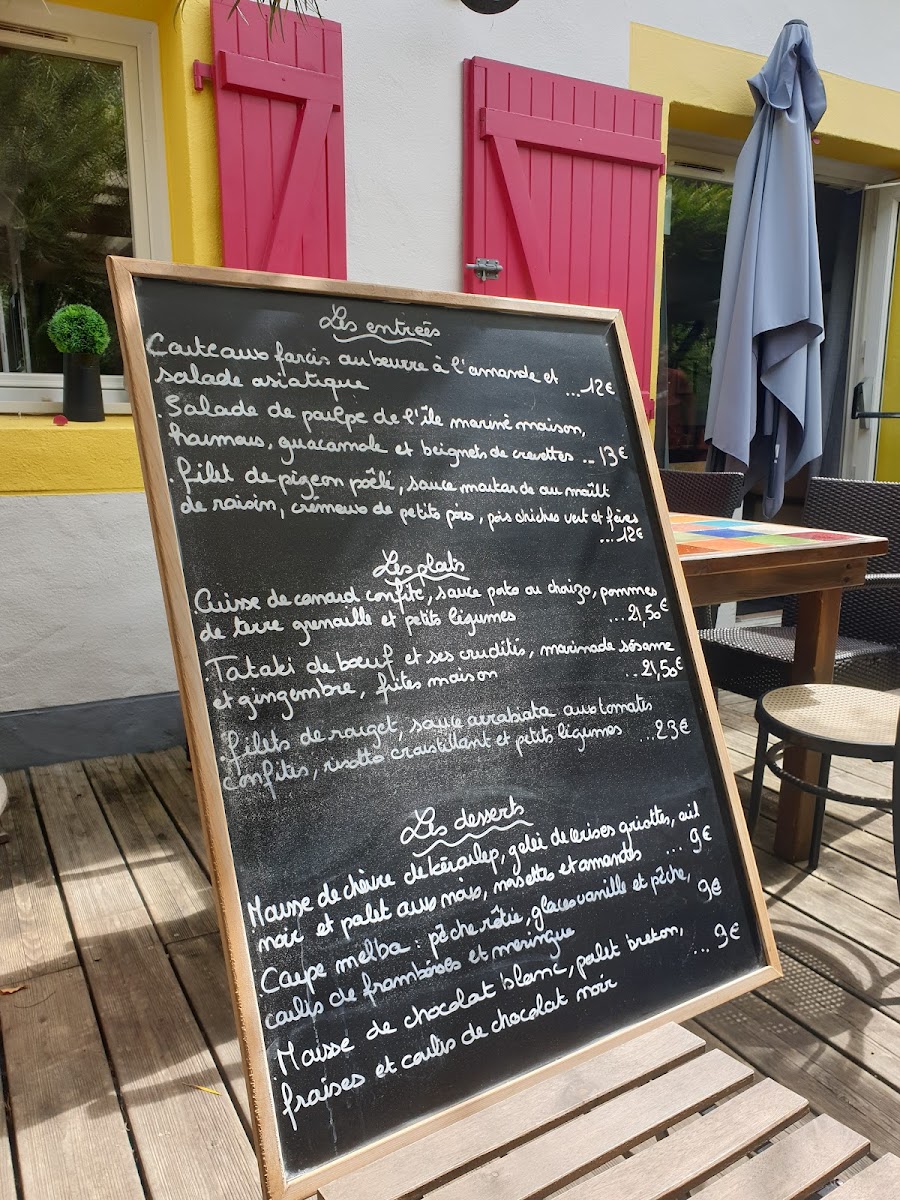 Les entrées
Couteaux farcis au beurre à l'amande et
salade asiatique ...12€
.Salade de poulpe de l'île mariné maison,
houmous, guacamole et beignets de crevettes ..13€
.filet de pigeon poêlé, sauce moutarde au moût
de raisin, crémeux de petits pois, pois chiches vert et fèves
...12€
Les plats
.Cuisse de canard confite, sauce porto au chorizo, pommes
de terre grenaille et petits légumes ...21,50€
.Tataki de bœuf et ses crudités, marinade sésame
et gingembre, frites maison ..21,50€
.filets de rouget, sauce arrabiata aux tomates
confites, risotto croustillant et petits légumes ...23€
Les desserts
.Mousse de chèvre de kéroulep, gelée de cerises griottes, ail
noir et palet aux noix, noisettes et amandes ...9€
.Coupe melba : pêche rôtie, glaces vanille et pêche,
coulis de framboises et meringue 9€
.Mousse de chocolat blanc, palet breton,
fraises et coulis de chocolat noir ...9€